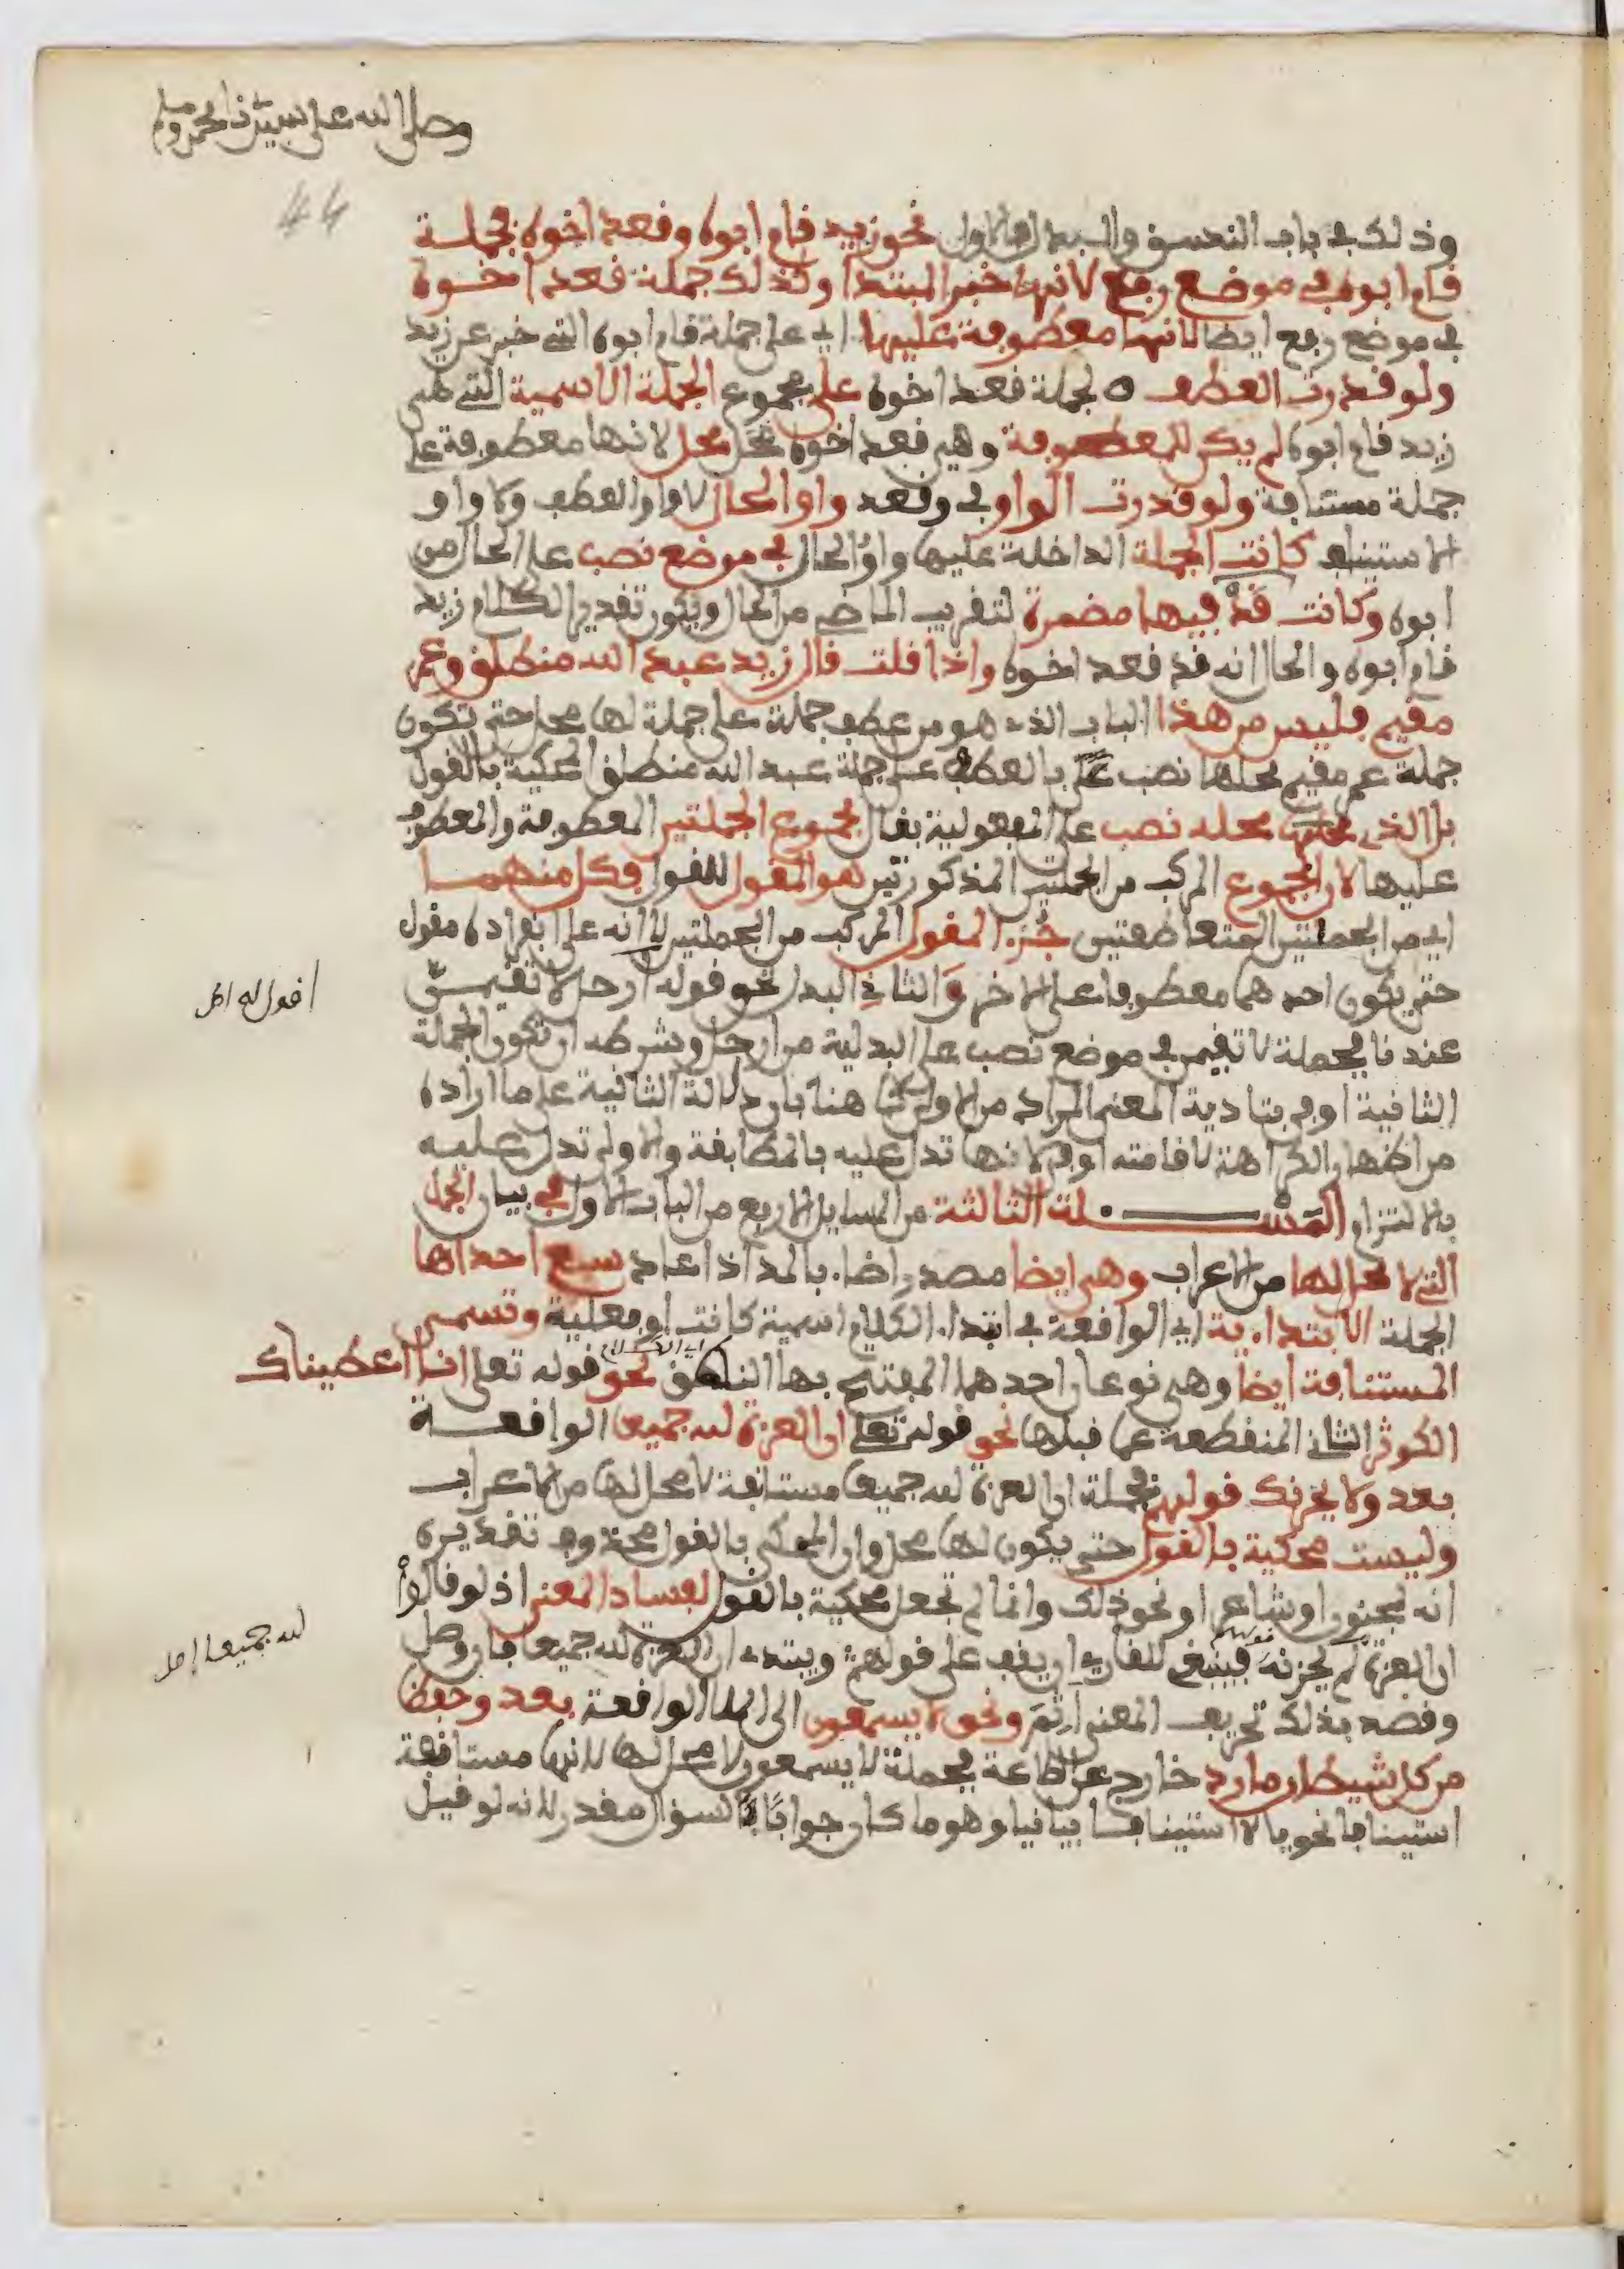 وصلى الله على نبينا محمد وسلم
44
وذلك في باب النسق والبدل فالاول نحو زيد قام ابوه وقعد اخوه فجملة
قام ابوه في موضع رفع لانها خبر المبتدا وكذلك جملة قعد اخوه
في موضع رفع ايضا لانها معطوفة عليها اي على جملة قام ابوه التي خبر عن زيد
ولو قدرت العطف لجملة قعد اخوه على مجموع الجملة الاسمية التي هي
زيد قام ابوه لم يكن للمعطوفة وهي قعد اخوه محل لانها معطوفة على
جملة مستانفة ولو قدرت الواو في وقعد واو الحال لا واو العطف ولا واو
الاستيناف كانت الجملة الداخلة عليها واو الحال في موضع نصب على الحال من
ابوه وكانت قد فيها مضمرة لتقريب الماضي من الحال ويكون تقدير الكلام زيد
قام ابوه والحال انه قد قعد اخوه واذا قلت قال زيد عبد الله منطلق وعمر
مقيم فليس من هذا الباب الذي هو من عطف جملة على جملة لها محل حتى تكون
جملة عمر مقيم محلها نصب بالعطف على جملة عبد الله منطلق المحكية بالقول
بل الذي محله نصب على المفعولية بقال مجموع الجملتين المعطوفة والمعطوف
عليها لان المجموع المركب من الجملتين المذكورتين هو المقول للقول فكل منهما
اي من الجملتين المتعاطفتين جزء المقول المركب من الجملتين لا انه على انفراده مقول
حتى يكون احدهما معطوفا على الاخر والثاني البدل نحو قوله ارحل لا تقيمن
اقول له اصل
عندنا فجملة لا تقيمن في موضع نصب على البدلية من ارحل وشرطه ان تكون الجملة
الثانية اوفى بتادية المعنى المراد من الاولى كما هنا فان دلالة الثانية على ما اراده
من اظهار الكراهة لاقامته اوفى لانها تدل عليه بالمطابقة والاولى تدل عليه
بالالتزام المسئلة الثالثة من المسايل الاربع من الباب الاول في بيان الجمل
التي لا محل لها من الاعراب وهي ايضا مصدر اضاء بالمد اذا عاد سبع احداها
الجملة الابتداءية اي الواقعة في ابتداء الكلام اسمية كانت او فعلية وتسمى
المستانفة ايضا وهي نوعان احدهما المفتتح بها النطق اي الكلام نحو قوله تعلى انا اعطيناك
الكوثر الثاني المنقطعة عما قبلها نحو قوله تعلى ان العزة لله جميعا الواقعة
بعد ولا يحزنك قولهم فجملة ان العزة لله جميعا مستانفة لا محل لها من الاعراب
وليست محكية بالقول حتى يكون لها محل وان المحكي بالقول محذوف تقديره
انه مجنون او شاعر او نحو ذلك وانما لم تجعل محكية بالقول لفساد المعنى اذ لو قالوا
ان العزة لم يحزنه قولهم فينبغي للقاري ان يقف على قولهم ويبتدي ان العزة لله جميعا فان وصل
لله جميعا اصل
وقصد بذلك تحريف المعنى اثم ونحو لا يسمعون الى الملا الواقعة بعد وحفظا
من كل شيطان مارد خارج عن الطاعة فجملة لا يسمعون لا محل لها لانها مستانفة
استينافا نحويا لا استينافا بيانيا وهو ما كان جوابا لسؤال مقدر لانه لو قيل